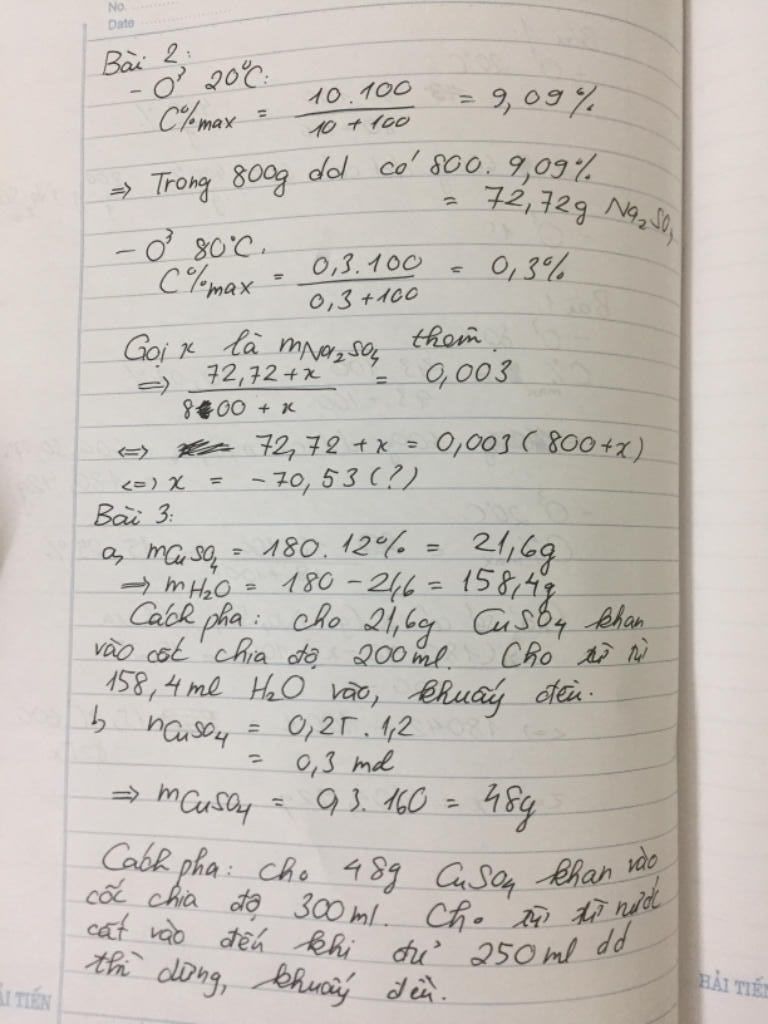 No.
Date
Bài 2:
- Ở 20°C:
C%max = 10.100 / 10+100 = 9,09%
=> Trong 800g dd có 800. 9,09%
= 72,72g Na2SO4
- Ở 80°C.
C%max = 0,3.100 / 0,3+100 = 0,3%
Gọi x là mNa2SO4 thêm.
=> 72,72+x / 800+x = 0,003
<=> 72,72+x = 0,003(800+x)
<=> x = -70,53(?)
Bài 3:
a, mCuSO4 = 180.12% = 21,6g
=> mH2O = 180 - 21,6 = 158,4g
Cách pha: cho 21,6g CuSO4 khan
vào cốc chia độ 200ml. Cho từ từ
158,4ml H2O vào, khuấy đều.
b, nCuSO4 = 0,25.1,2
= 0,3 mol
=> mCuSO4 = 0,3.160 = 48g
Cách pha: cho 48g CuSO4 khan vào
cốc chia độ 300ml. Cho từ từ nước
cất vào đến khi đủ 250ml dd
thì dừng, khuấy đều.
ẢI TIẾN
HẢI TIẾN